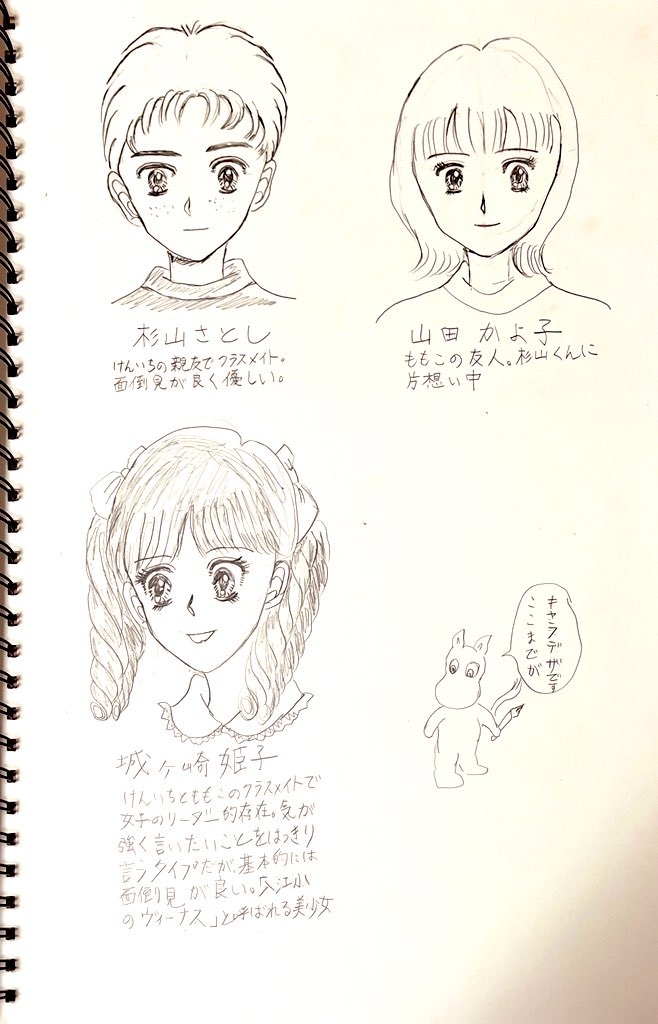 杉山さとし
けんいちの親友でクラスメイト。
面倒見が良く優しい。
山田かよ子
ももこの友人。杉山くんに
片想い中
城ヶ崎姫子
けんいちとももこのクラスメイトで
女子のリーダー的存在。気が
強く言いたいことをはっきり
言うタイプだが、基本的には
面倒見が良い。「入江小
のヴィーナス」と呼ばれる美少女
ここまでが
キャラデザです